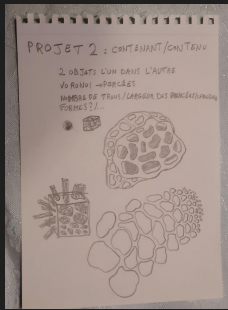 PROJET 2 : CONTENANT/CONTENU
2 OBJETS L'UN DANS L'AUTRE
VORONOI → PERCÉES
NOMBRE DE TROUS/LARGEUR DES
FORMES?/...